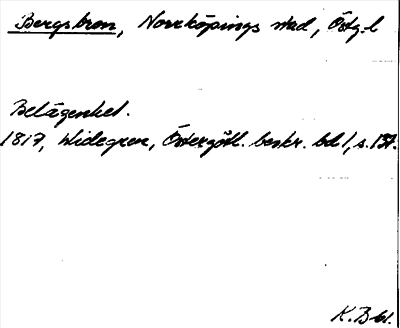 Bergsbron, Norrköpings stad, Östg.l
Belägenhet.
1817, Widegren, Östergötl. beskr. bd 1, s. 137.
K.B-bl.